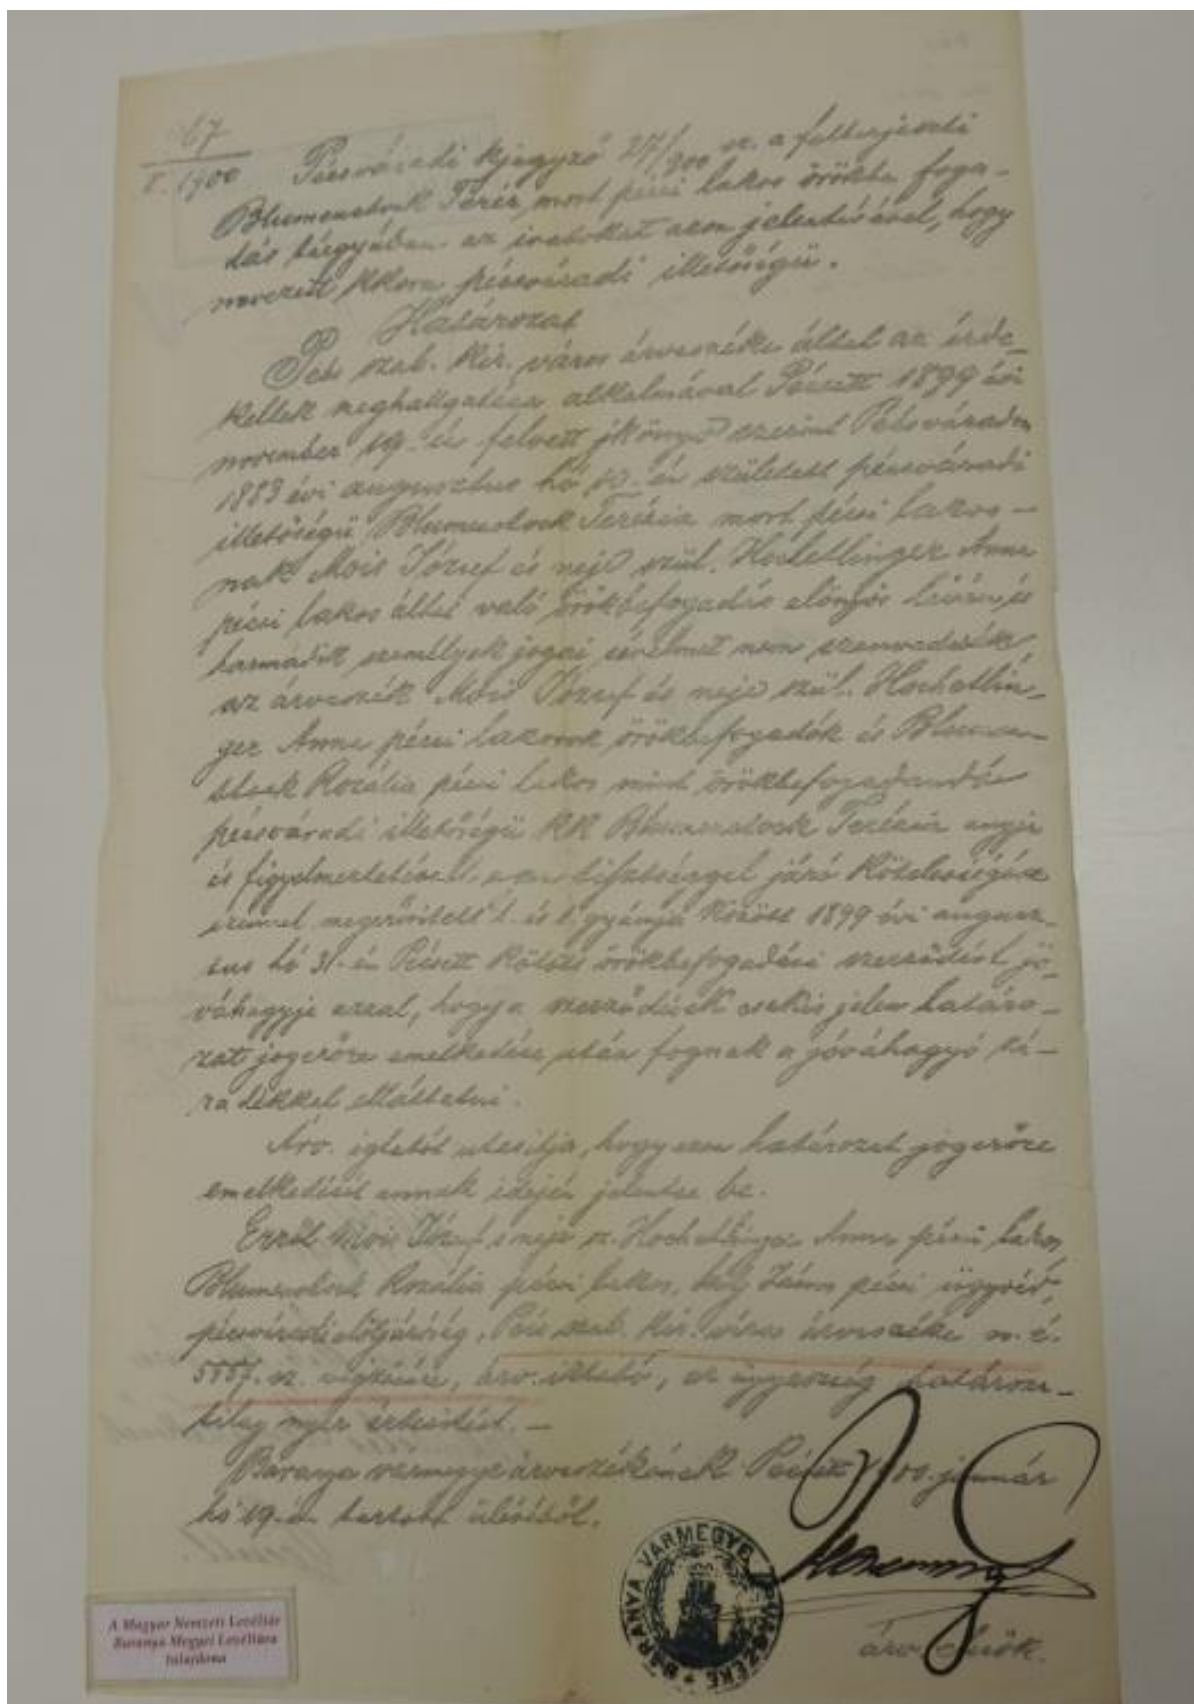 67
I. 1900
Pécsváradi kjegyző 27/900 sz. a felterjeszti
Blumenstock Teréz, most pécsi lakos örökbe foga-
dás tárgyában az iratokat azon jelentésével, hogy
nevezett kkoru pécsváradi illetőségü.
Határozat
Pécs szab. kir. város árvaszéke által az érde-
keltek meghallgatása alkalmával Pécsett 1899 évi
november 19-én felvett jkönyv szerint Pécsváradon
1883 évi augusztus hó én született pécsváradi
illetőségü Blumenstock Terézia most pécsi lakos-
nak Mois József és neje szül. Hochetlinger Anna
pécsi lakos általi való örökbefogadás előnyös lévén és
harmadik személyek jogai sérelmet nem szenvedvén
az árvaszék Mois József és neje szül. Hochetlin-
ger Anna pécsi lakosok örökbefogadók és Blumen-
stock Rozália pécsi lakos mint örökbefogadandó
pécsváradi illetőségü kk Blumenstock Terézia anyja
és ezen tisztséggel járó kötelességére
megerősített t. és t. gyámja között 1899 évi augusz-
tus hó 31-én Pécsett kötött örökbefogadási szerződést jó-
váhagyja azzal, hogy a szerződések csakis jelen határo-
zat jogerőre emelkedése után fognak a jóváhagyó zá-
radékkal elláttatni.
Árv. igtatót utasítja, hogy ezen határozat jogerőre
emelkedését annak idején jelentse be.
Erről Mois József s neje sz. Hochetlinger Anna pécsi lakos,
Blumenstock Rozália pécsi lakos, János pécsi ügyvéd,
pécsváradi előljáróság, Pécs szab. kir. város árvaszéke
sz. végzésére, árv. iktató, az ügyészség határozati-
lag nyer értesítést. -
Baranya vármegye árvaszékének Pécsett 1900. január
hó 19-én tartott üléséből.
BARANYA VÁRMEGYE ÁRVASZÉKE
árv. elnök.
A Magyar Nemzeti Levéltár
Baranya Megyei Levéltára
tulajdona